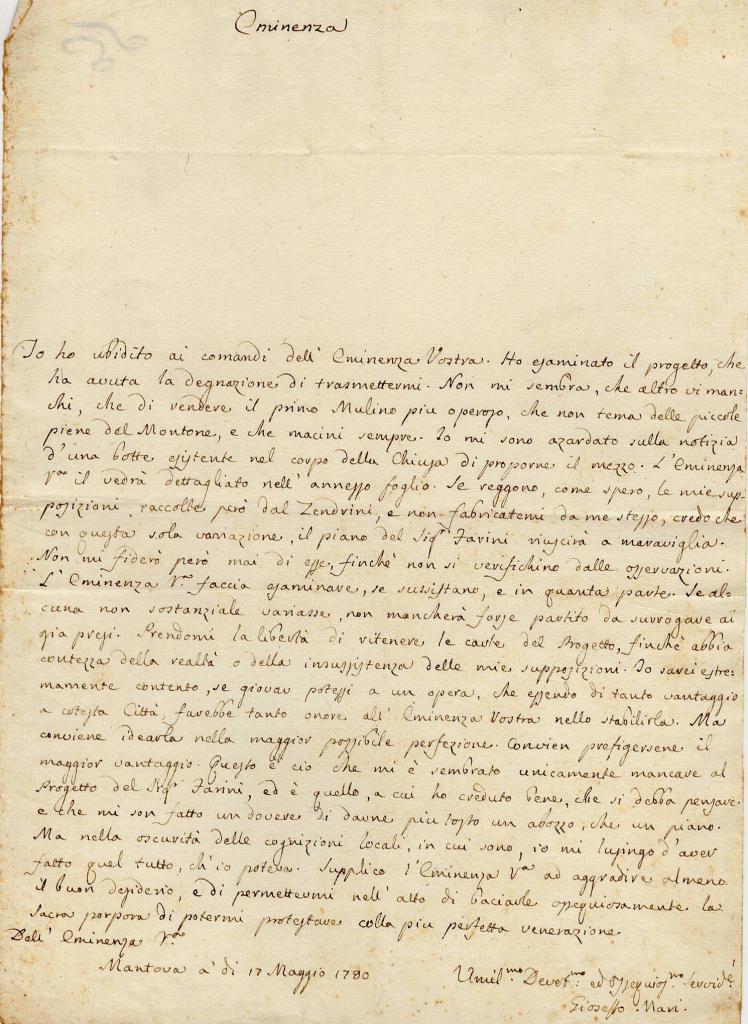 Eminenza
Io ho ubidito ai comandi dell' Eminenza Vostra. Ho esaminato il progetto, che
ha avuta la degnazione di trasmettermi. Non mi sembra, che altro vi man-
chi, che di rendere il primo Mulino piu operoso, che non tema delle piccole
piene del Montone, e che macini sempre. Io mi sono azardato sulla notizia
d'una botte esistente nel corpo della Chiusa di proporne il mezzo. L'Eminenza
V.ra il vedrà dettagliato nell' annesso foglio. Se reggono, come spero, le mie sup-
posizioni raccolte però dal Zendrini, e non fabricatemi da me stesso, credo che
con questa sola variazione, il piano del Sig.r Farini riuscirà a maraviglia.
Non mi fiderò però mai di esse, finchè non si verifichino dalle osservazioni.
L' Eminenza V.ra faccia esaminare, se sussistano, e in quanta parte. Se al-
cuna non sostanziale variasse, non mancherà forse partito da surrogare ai
già presi. Prendomi la libertà di ritenere le carte del Progetto, finchè abbia
contezza della realtà o della insussistenza delle mie supposizioni. Io sarei estre-
mamente contento, se giovar potessi a un opera, che essendo di tanto vantaggio
a cotesta Città, farebbe tanto onore all' Eminenza Vostra nello stabilirla. Ma
conviene idearla nella maggior possibile perfezione. Convien prefigersene il
maggior vantaggio. Questo è ciò che mi è sembrato unicamente mancare al
Progetto del Sig.r Farini, ed è quello, a cui ho creduto bene, che si debba pensare
e che mi son fatto un dovere di darne piu tosto un abozzo, che un piano.
Ma nella oscurità delle cognizioni locali, in cui sono, io mi lusingo d'aver
fatto quel tutto, ch'io poteva. Supplico l'Eminenza V.ra ad aggradire almeno
il buon desiderio, e di permettermi nell' atto di baciarle ossequiosamente la
Sacra porpora di potermi protestare colla piu perfetta venerazione
Dell' Eminenza V.ra
Mantova a' dì 17 Maggio 1780
Umil.mo Devot.mo ed Ossequios.mo Servid.e
Gioseffo Mari.